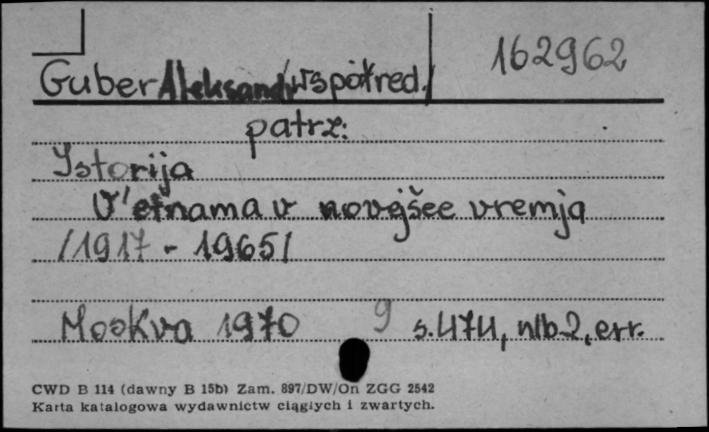 162962
Guber Aleksandr /współred./
patrz:
Istorija
V'etnama v novejšee vremja
/1917 - 1965/
Moskva 1970 9 s. 474, nlb 2, err.
CWD B 114 (dawny B 15b) Zam. 897/DW/On ZGG 2542
Karta katalogowa wydawnictw ciągłych i zwartych.